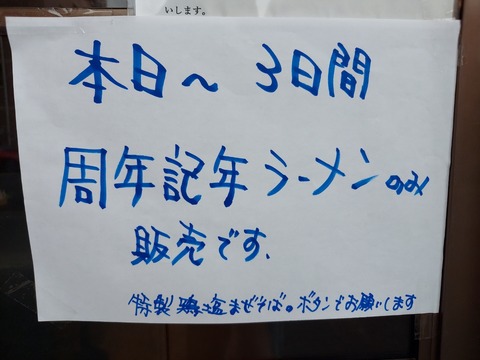 いします。
本日～ 3日間
周年記年ラーメンのみ
販売です、
特製 鶏塩まぜそば。ボタンでお願いします